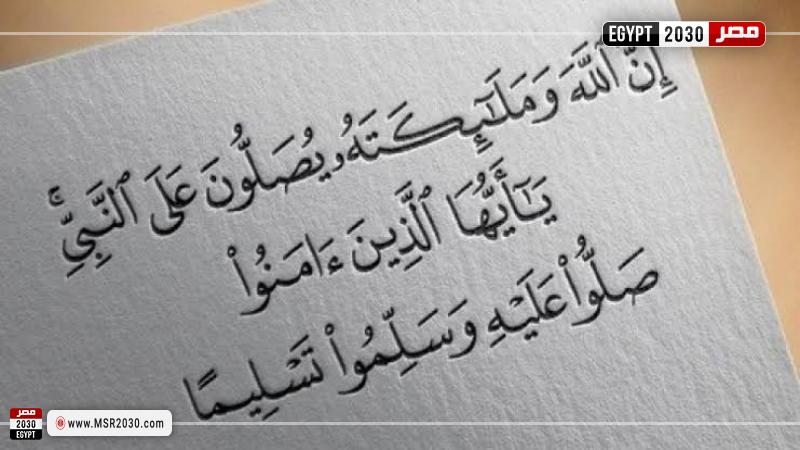 EGYPT 2030 مصر
إِنَّ ٱللَّهَ وَمَلَـٰٓئِكَتَهُۥ يُصَلُّونَ عَلَى ٱلنَّبِىِّ ۚ
يَـٰٓأَيُّهَا ٱلَّذِينَ ءَامَنُوا۟
صَلُّوا۟ عَلَيْهِ وَسَلِّمُوا۟ تَسْلِيمًا
مصر
2030
EGYPT
www.MSR2030.com